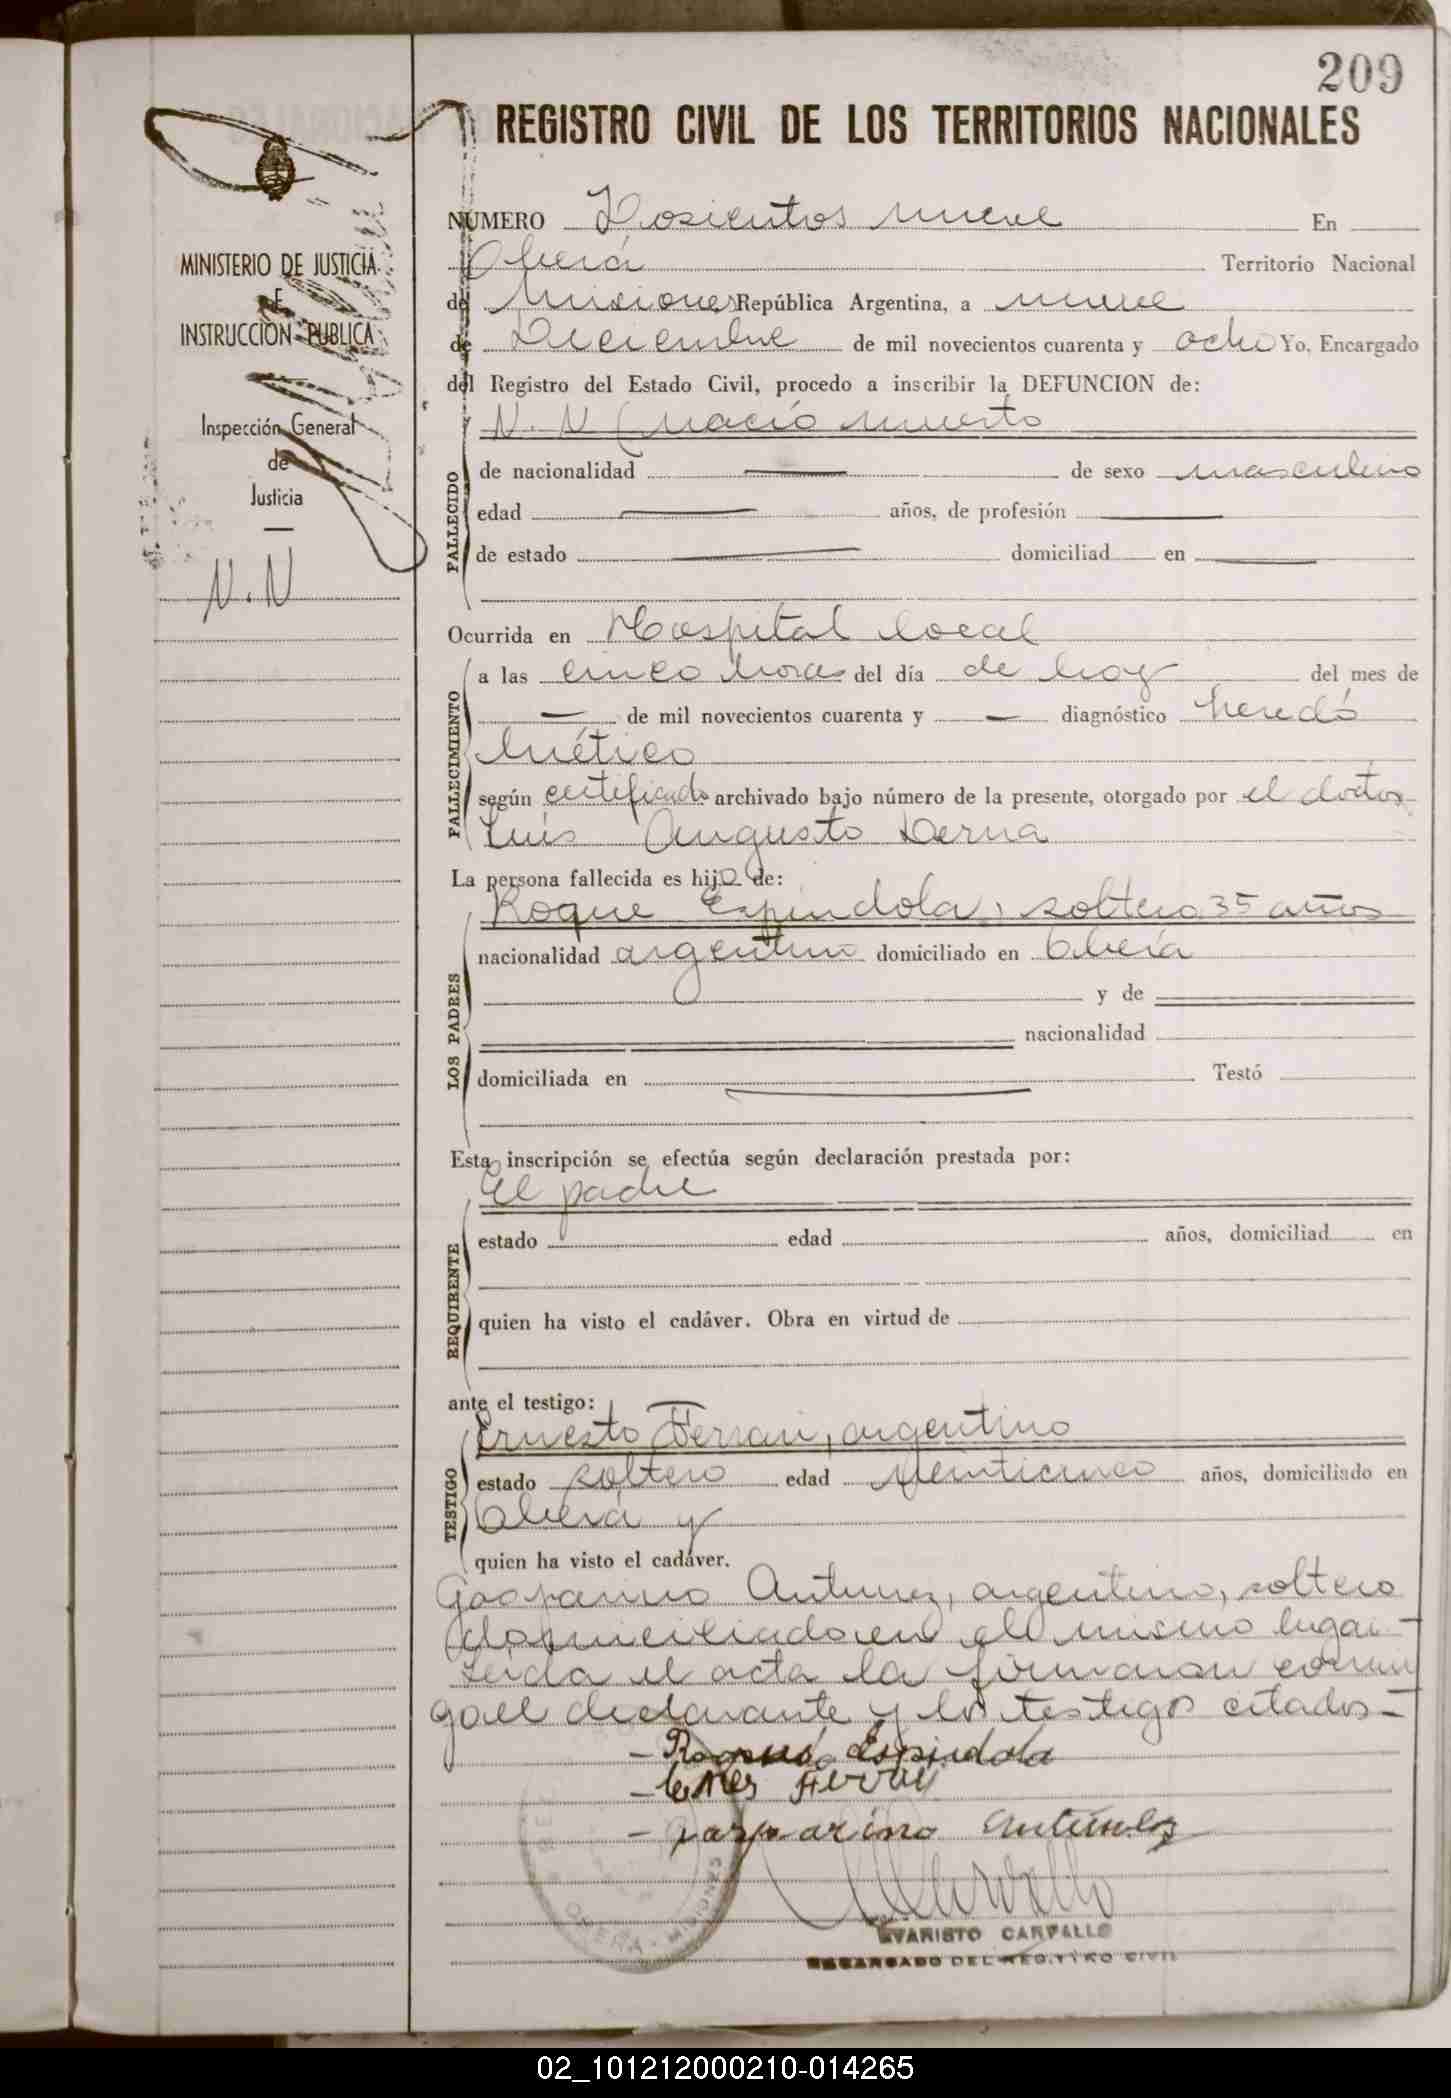 209
REGISTRO CIVIL DE LOS TERRITORIOS NACIONALES
MINISTERIO DE JUSTICIA
E
INSTRUCCIÓN PUBLICA
Inspección General
de
Justicia
N.N
NÚMERO Dosientos nueve En
Oberá Territorio Nacional
de Misiones República Argentina, a nueve
de Diciembre de mil novecientos cuarenta y ocho Yo, Encargado
del Registro del Estado Civil, procedo a inscribir la DEFUNCION de:
N.N (nacio muerto
FALLECIDO
de nacionalidad — de sexo masculino
edad — años, de profesión —
de estado — domiciliad en —
Ocurrida en Hospital local
FALLECIMIENTO
a las cinco horas del día de hoy del mes de
— de mil novecientos cuarenta y — diagnóstico heredó
luético
según certificado archivado bajo número de la presente, otorgado por el doctor
Luis Augusto Derna
La persona fallecida es hijo de:
LOS PADRES
Roque Espindola, soltero 35 años
nacionalidad argentino domiciliado en Oberá
y de
nacionalidad
domiciliada en — Testó
Esta inscripción se efectúa según declaración prestada por:
REQUIRENTE
El padre
estado edad años, domiciliad en
quien ha visto el cadáver. Obra en virtud de
ante el testigo:
TESTIGO
Ernesto Ferrari, argentino
estado soltero edad veinticinco años, domiciliado en
Oberá y
quien ha visto el cadáver.
Gasparino Antunez, argentino, soltero
domiciliado en el mismo lugar —
Leida el acta la firmaron conmi
go el declarante y los testigos citados —
— Roque Espindola
— Gasparino Antúnez
OBERA - MISIONES
EVARISTO CARVALLO
ENCARGADO DEL REGISTRO CIVIL
02_101212000210-014265